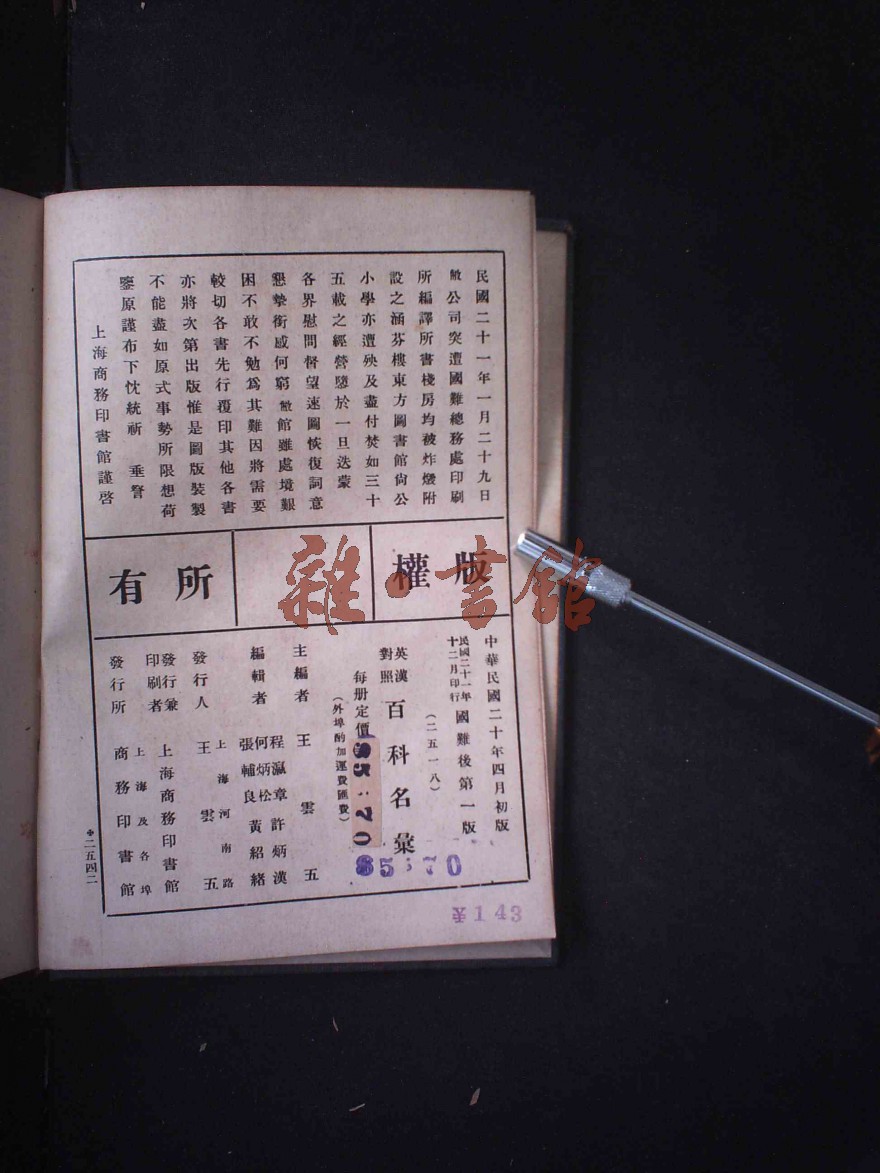 民國二十一年一月二十九日
敝公司突遭國難總務處印刷
所編譯所書棧房均被炸燬附
設之涵芬樓東方圖書館尙公
小學亦遭殃及盡付焚如三十
五載之經營隳於一旦迭蒙
各界慰問督望速圖恢復詞意
懇摯銜感何窮敝館雖處境艱
困不敢不勉爲其難因將需要
較切各書先行覆印其他各書
亦將次第出版惟是圖版裝製
不能盡如原式事勢所限想荷
鑒原謹布下忱統祈 垂詧
上海商務印書館謹啓
版權所有
雜·書館
中華民國二十年四月初版
民國二十一年十二月印行 國難後第一版
(二五一八)
英漢對照 百科名彙
每册定價
$5.70
(外埠酌加運費匯費)
$5.70
主編者 王雲五
編輯者 程瀛章 許炳漢
何炳松
張輔良 黃紹緒
發行人 王雲五
上海河南路
發行兼印刷者 上海商務印書館
上海及各埠
發行所 商務印書館
二五四二
¥143